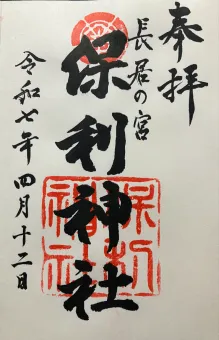 奉拝
長居の宮
保利神社
令和七年四月十二日
保利神社